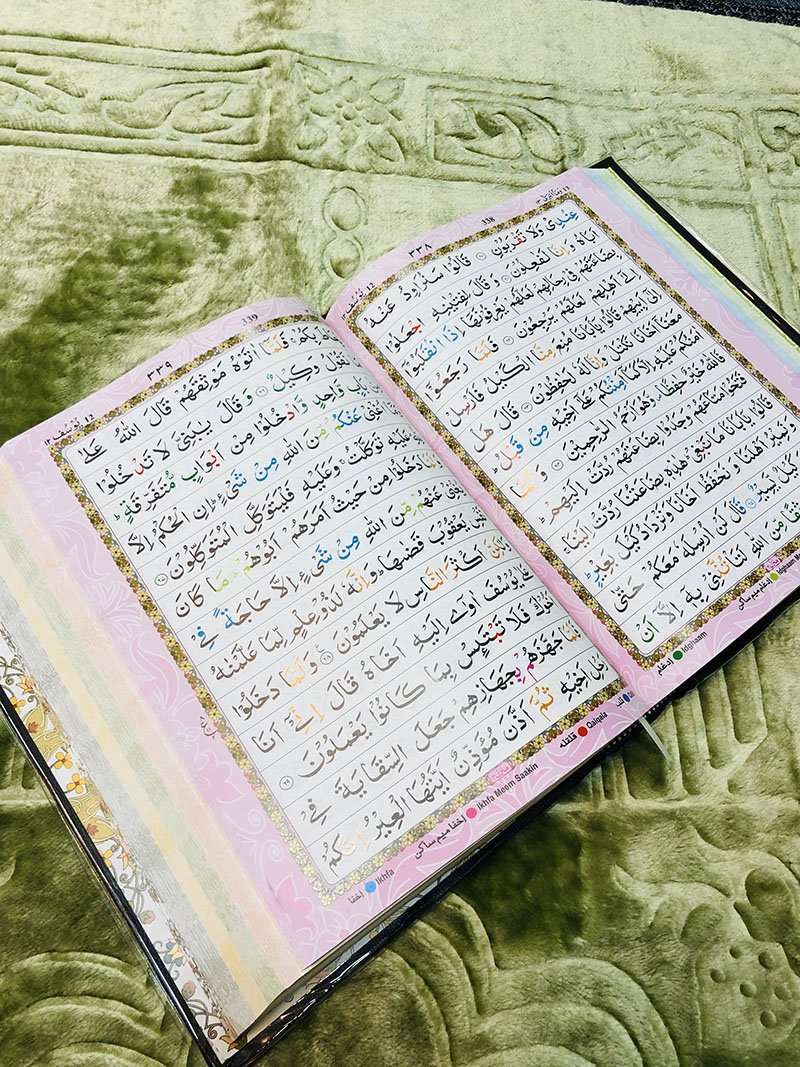 ١٣ وَمَآ اُبَرِّئُ
338
٣٣٨
١٢ يُوْسُف ١٢
عِنْدِیْ وَلَا تَقْرَبُوْنِ ۝ قَالُوْا سَنُرَاوِدُ عَنْهُ
اَبَاهُ وَاِنَّا لَفٰعِلُوْنَ ۝ وَقَالَ لِفِتْیٰنِهِ اجْعَلُوْا
بِضَاعَتَهُمْ فِیْ رِحَالِهِمْ لَعَلَّهُمْ یَعْرِفُوْنَهَاۤ اِذَا انْقَلَبُوْۤا
اِلٰۤی اَهْلِهِمْ لَعَلَّهُمْ یَرْجِعُوْنَ ۝ فَلَمَّا رَجَعُوْۤا
اِلٰۤی اَبِیْهِمْ قَالُوْا یٰۤاَبَانَا مُنِعَ مِنَّا الْكَیْلُ فَاَرْسِلْ
مَعَنَاۤ اَخَانَا نَكْتَلْ وَاِنَّا لَهٗ لَحٰفِظُوْنَ ۝ قَالَ هَلْ
اٰمَنُكُمْ عَلَیْهِ اِلَّا كَمَاۤ اَمِنْتُكُمْ عَلٰۤی اَخِیْهِ مِنْ قَبْلُ ؕ
فَاللّٰهُ خَیْرٌ حٰفِظًا ۪ وَّهُوَ اَرْحَمُ الرّٰحِمِیْنَ ۝ وَلَمَّا
فَتَحُوْا مَتَاعَهُمْ وَجَدُوْا بِضَاعَتَهُمْ رُدَّتْ اِلَیْهِمْ ؕ
قَالُوْا یٰۤاَبَانَا مَا نَبْغِیْ ؕ هٰذِهٖ بِضَاعَتُنَا رُدَّتْ اِلَیْنَا ۚ
وَنَمِیْرُ اَهْلَنَا وَنَحْفَظُ اَخَانَا وَنَزْدَادُ كَیْلَ بَعِیْرٍ ؕ
كَیْلٌ یَّسِیْرٌ ۝ قَالَ لَنْ اُرْسِلَهٗ مَعَكُمْ حَتّٰی
مَوْثِقًا مِّنَ اللّٰهِ لَتَاْتُنَّنِیْ بِهٖۤ اِلَّاۤ اَنْ
Idghaam ادغام میم ساکن
Idghaam إدغام
339
٣٣٩
١٢ يُوْسُف ١٢
بِكُمْ ۚ فَلَمَّاۤ اٰتَوْهُ مَوْثِقَهُمْ قَالَ اللّٰهُ عَلٰی
نَقُوْلُ وَكِیْلٌ ۝ وَقَالَ یٰبَنِیَّ لَا تَدْخُلُوْا
بَابٍ وَّاحِدٍ وَّادْخُلُوْا مِنْ اَبْوَابٍ مُّتَفَرِّقَةٍ ؕ
اُغْنِیْ عَنْكُمْ مِّنَ اللّٰهِ مِنْ شَیْءٍ ؕ اِنِ الْحُكْمُ اِلَّا
عَلَیْهِ تَوَكَّلْتُ ۚ وَعَلَیْهِ فَلْیَتَوَكَّلِ الْمُتَوَكِّلُوْنَ ۝
دَخَلُوْا مِنْ حَیْثُ اَمَرَهُمْ اَبُوْهُمْ ؕ مَا كَانَ
یُغْنِیْ عَنْهُمْ مِّنَ اللّٰهِ مِنْ شَیْءٍ اِلَّا حَاجَةً فِیْ
نَفْسِ یَعْقُوْبَ قَضٰىهَا ؕ وَاِنَّهٗ لَذُوْ عِلْمٍ لِّمَا عَلَّمْنٰهُ
اَكْثَرَ النَّاسِ لَا یَعْلَمُوْنَ ۝ وَلَمَّا دَخَلُوْا
یُوْسُفَ اٰوٰۤی اِلَیْهِ اَخَاهُ قَالَ اِنِّیْۤ اَنَا
اَخُوْكَ فَلَا تَبْتَىِٕسْ بِمَا كَانُوْا یَعْمَلُوْنَ ۝
فَلَمَّا جَهَّزَهُمْ بِجَهَازِهِمْ جَعَلَ السِّقَایَةَ فِیْ
رَحْلِ اَخِیْهِ ثُمَّ اَذَّنَ مُؤَذِّنٌ اَیَّتُهَا الْعِیْرُ اِنَّكُمْ
قلب
Qalqala قلقله
Ikhfa Meem Saakin إخفا ميم ساكن
Ikhfa إخفا